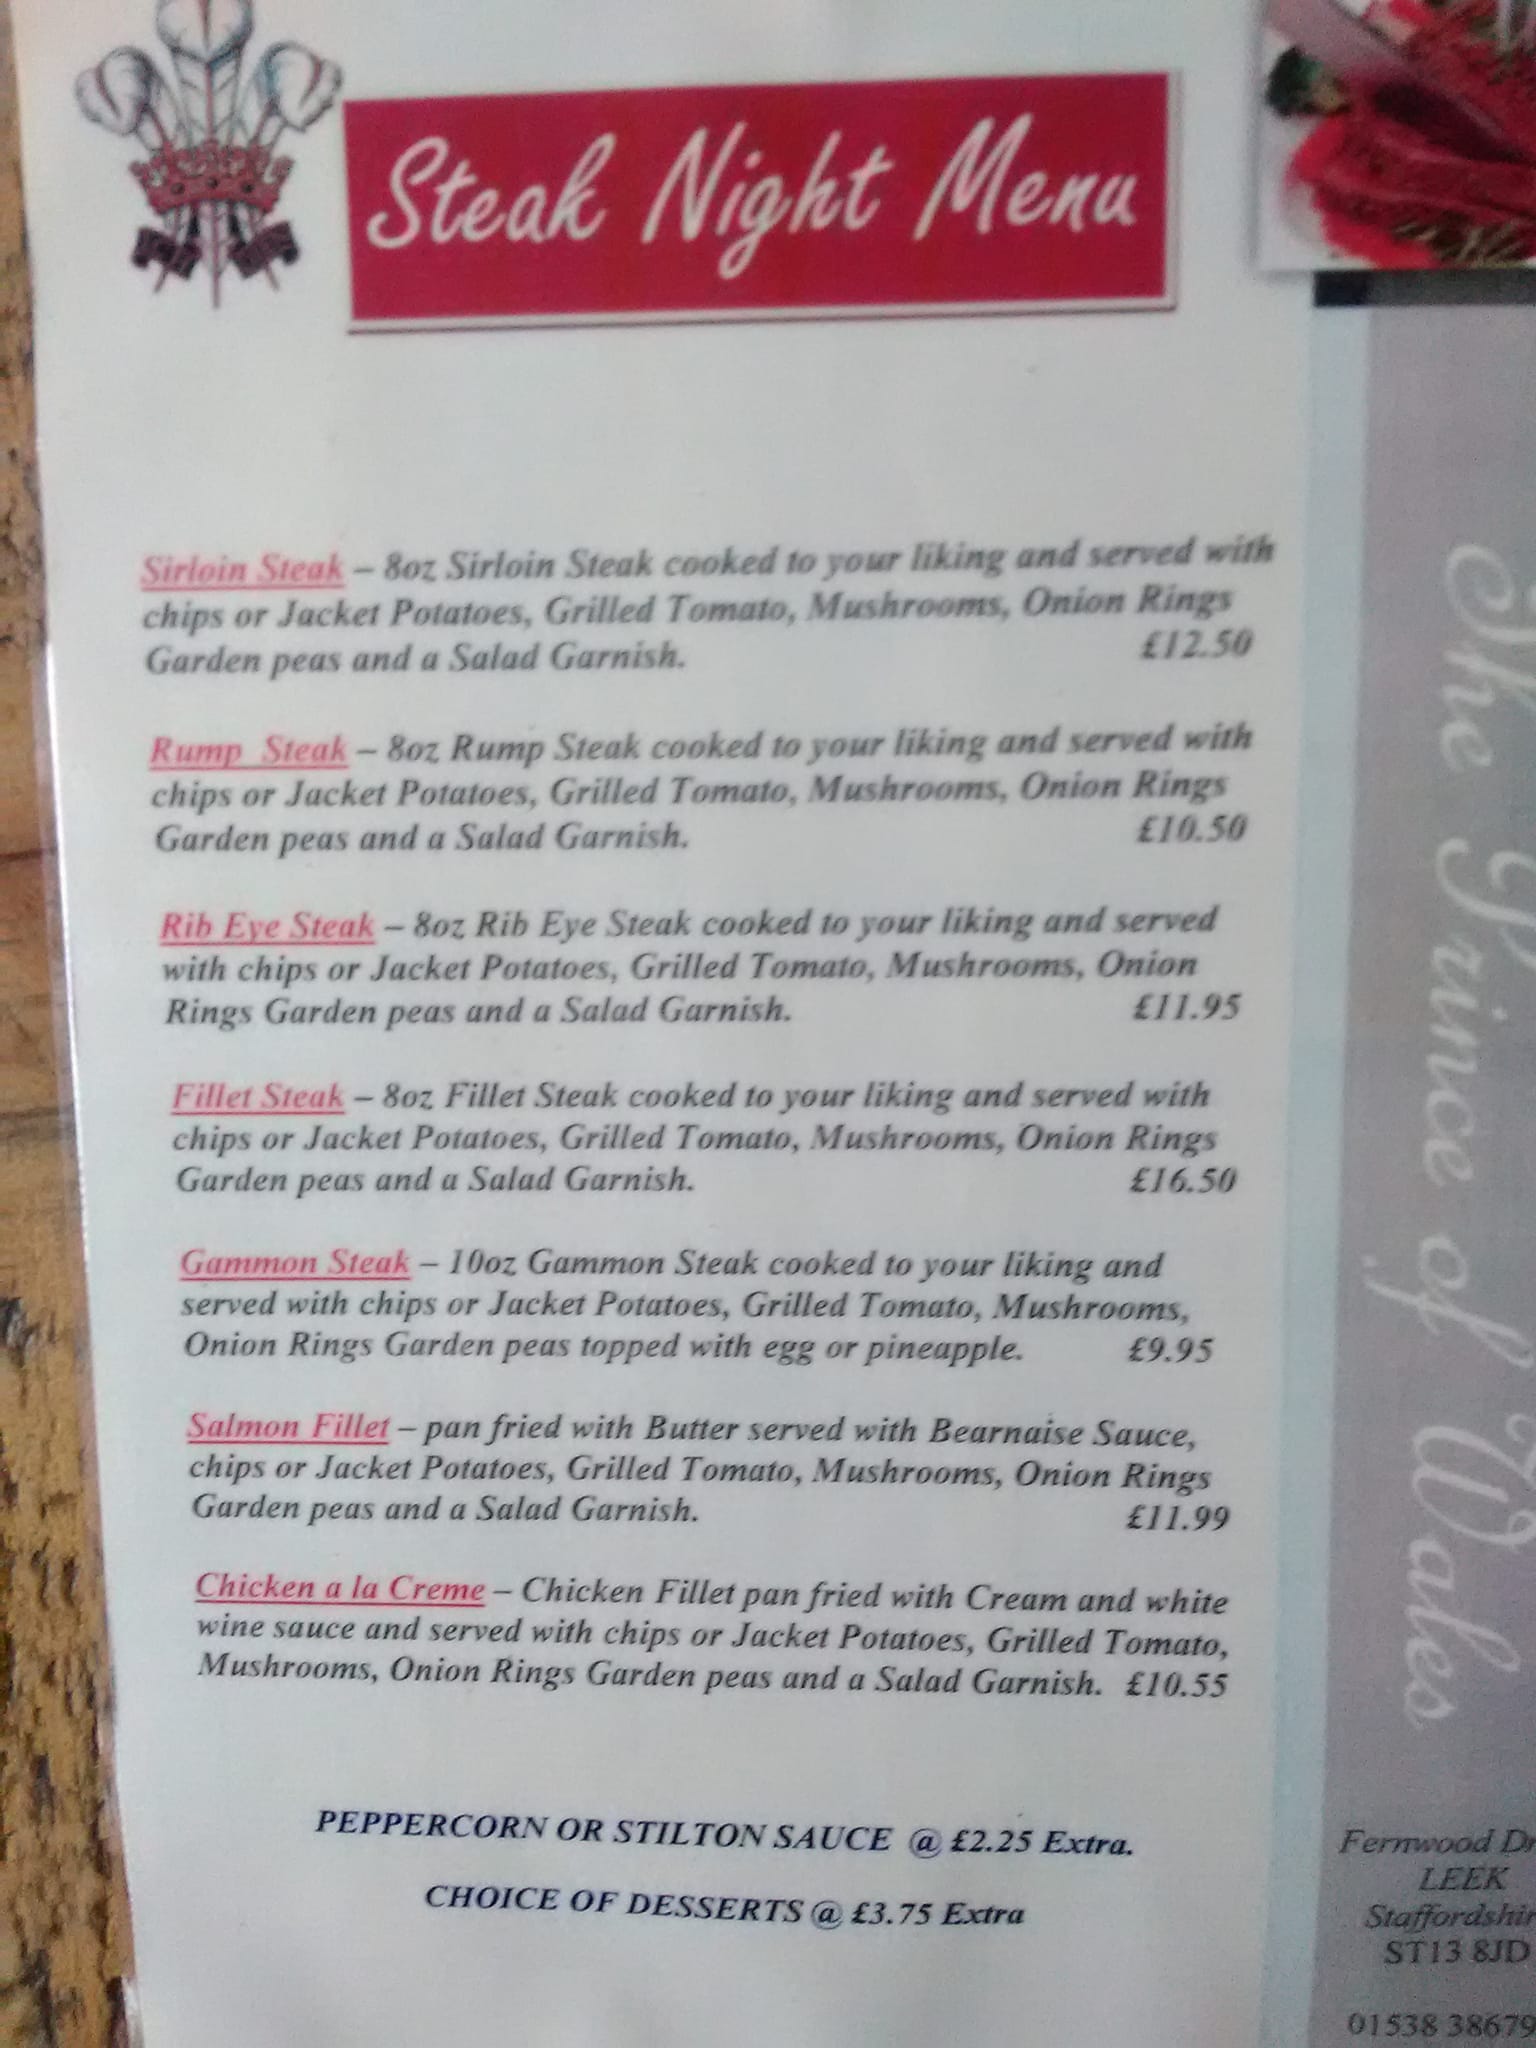 Steak Night Menu
Sirloin Steak – 8oz Sirloin Steak cooked to your liking and served with
chips or Jacket Potatoes, Grilled Tomato, Mushrooms, Onion Rings
Garden peas and a Salad Garnish. £12.50
Rump Steak – 8oz Rump Steak cooked to your liking and served with
chips or Jacket Potatoes, Grilled Tomato, Mushrooms, Onion Rings
Garden peas and a Salad Garnish. £10.50
Rib Eye Steak – 8oz Rib Eye Steak cooked to your liking and served
with chips or Jacket Potatoes, Grilled Tomato, Mushrooms, Onion
Rings Garden peas and a Salad Garnish. £11.95
Fillet Steak – 8oz Fillet Steak cooked to your liking and served with
chips or Jacket Potatoes, Grilled Tomato, Mushrooms, Onion Rings
Garden peas and a Salad Garnish. £16.50
Gammon Steak – 10oz Gammon Steak cooked to your liking and
served with chips or Jacket Potatoes, Grilled Tomato, Mushrooms,
Onion Rings Garden peas topped with egg or pineapple. £9.95
Salmon Fillet – pan fried with Butter served with Bearnaise Sauce,
chips or Jacket Potatoes, Grilled Tomato, Mushrooms, Onion Rings
Garden peas and a Salad Garnish. £11.99
Chicken a la Creme – Chicken Fillet pan fried with Cream and white
wine sauce and served with chips or Jacket Potatoes, Grilled Tomato,
Mushrooms, Onion Rings Garden peas and a Salad Garnish. £10.55
PEPPERCORN OR STILTON SAUCE @ £2.25 Extra.
CHOICE OF DESSERTS @ £3.75 Extra
The Prince of Wales
Fernwood
LEEK
ST13 8JD
01538